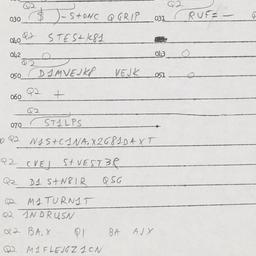 Q2 Q2
030 ( $ )-S+ONC QGRIP 031 ( RUF=-
040 Q2 STES+K81
042 063
Q2
050 D1MVEJK8 VEJK 051
060 Q2 +
Q2
070 ST1LPS
Q2 N1S+C1NA,X2G81DAXT
Q2 CVEJ S+VEST3R
Q2 D1 S+N8IR QSG
Q2 M1TURN1T
Q2 1NDRUSN
Q2 BA,X Q1 8A AJX
Q2 M1FLEJGZ1CN